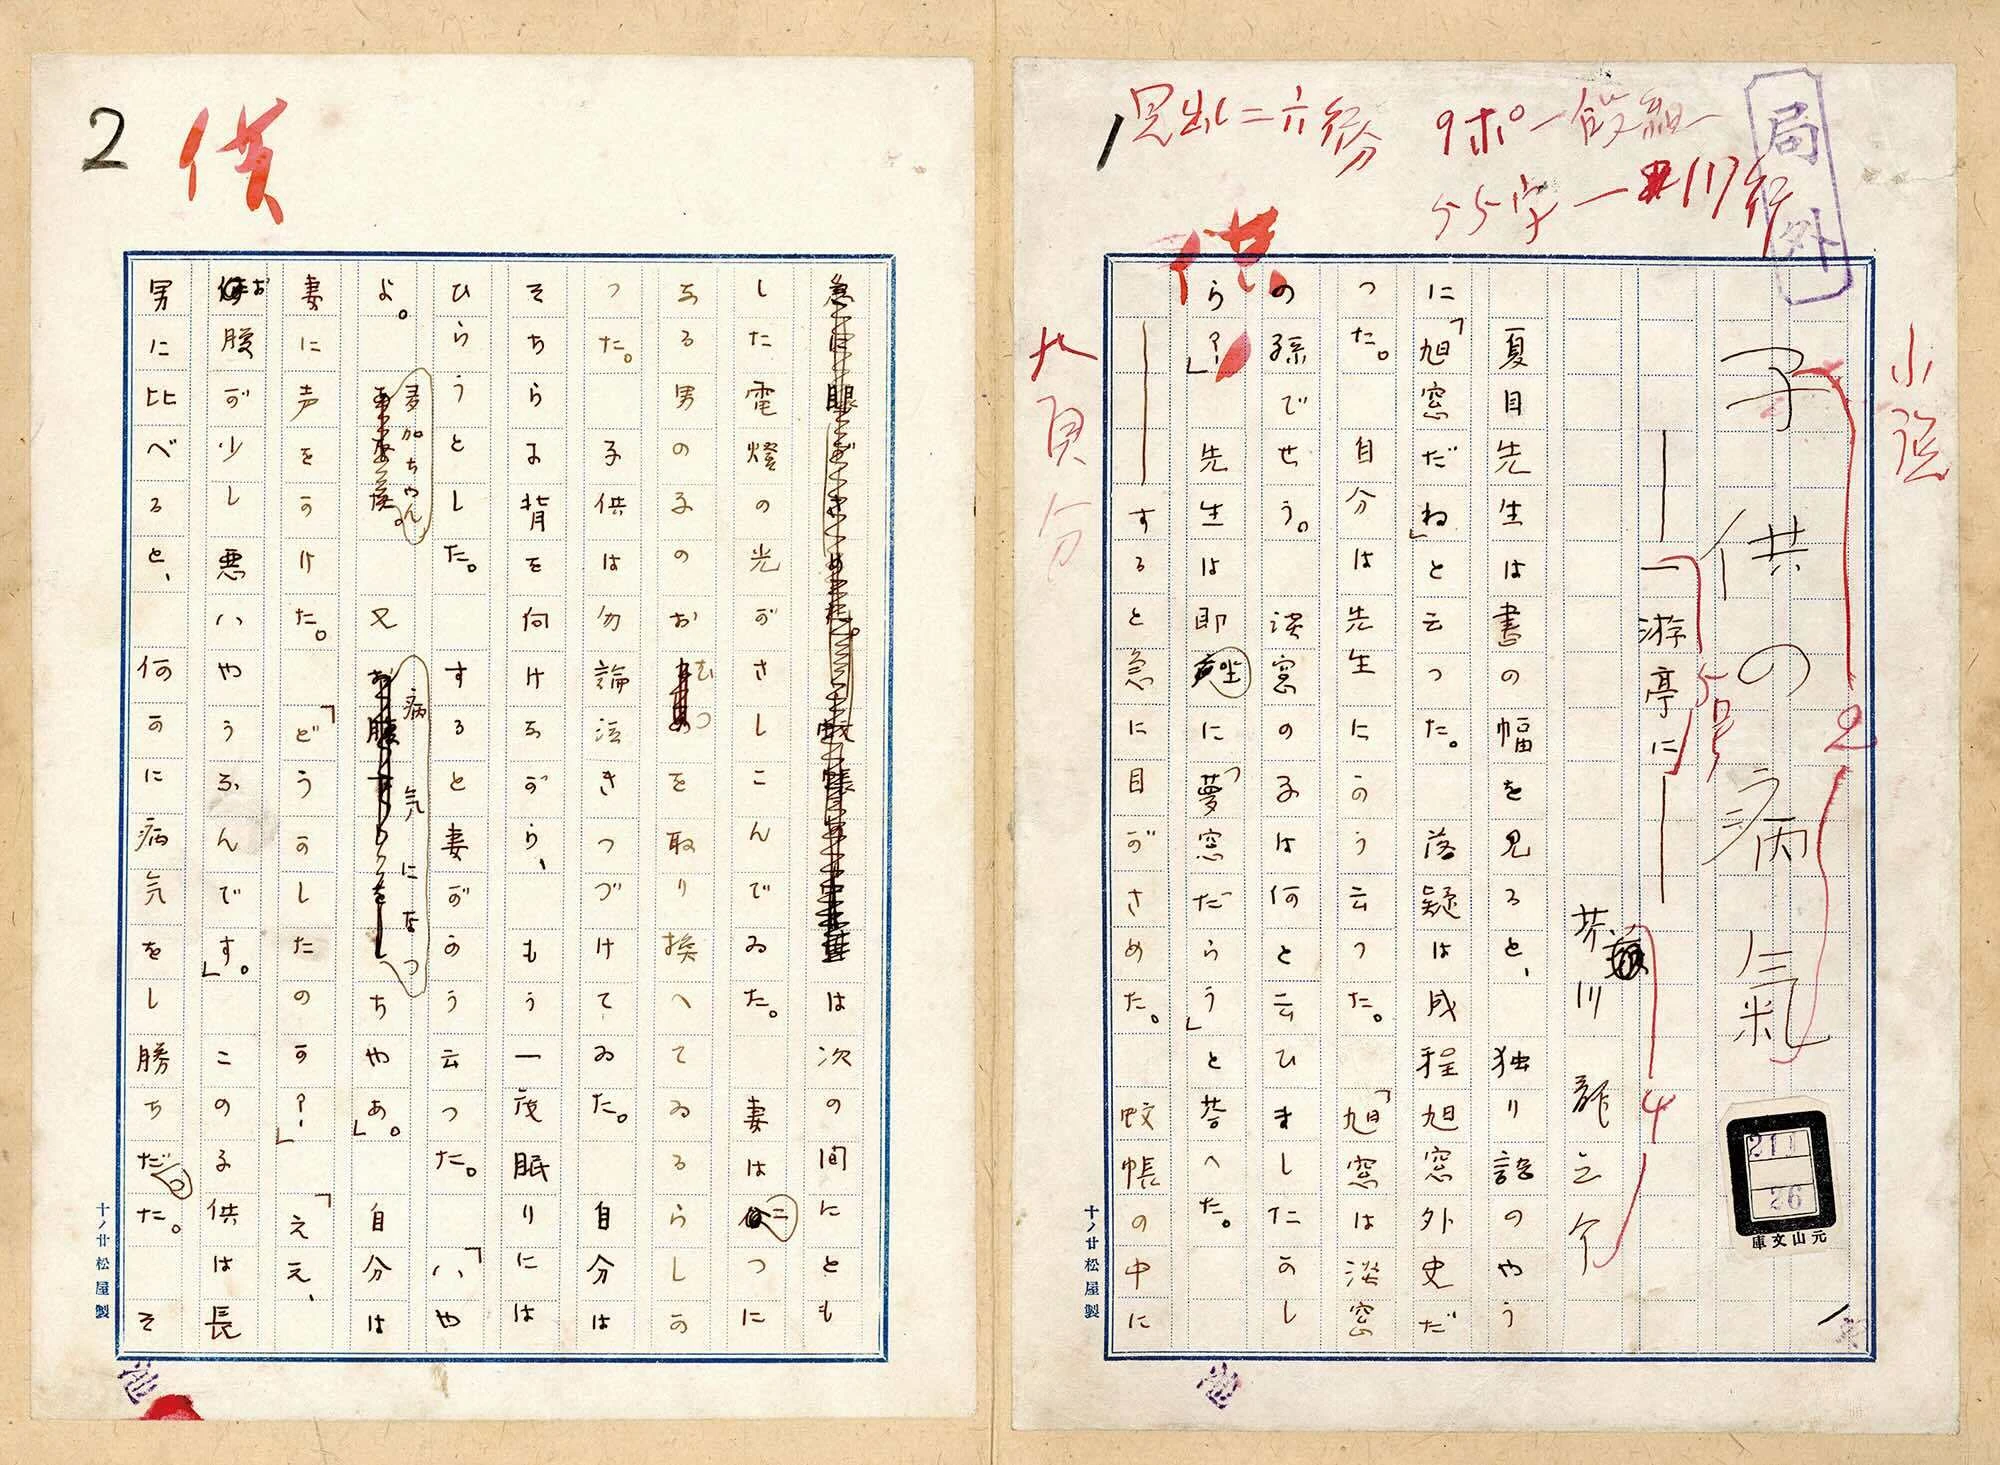 小説
子供の病氣
――一游亭に――
芥川龍之介
夏目先生は書の幅を見ると、独り語のやう
に「旭窓だね」と云つた。落疑は成程旭窓外史だ
つた。自分は先生にかう云つた。「旭窓は淡窓
の孫でせう。淡窓の子は何と云ひましたかし
ら?」先生は即座に「夢窓だらう」と荅へた。
――すると急に目がさめた。蚊帳の中に
局外
見出し二六行分
9ポ一段組
55字一117行
1
供
九頁分
2
5号
4
211
26
元山文庫
十ノ廿松屋製
2
供
は次の間にとも
した電燈の光がさしこんでゐた。妻は二つに
なる男の子のおむつを取り換へてゐるらしか
つた。子供は勿論泣きつづけてゐた。自分は
そちらに背を向けながら、もう一度眠りには
ひらうとした。すると妻がかう云つた。「いや
よ。多加ちやん。又病気になつちやあ。」自分は
妻に声をかけた。「どうかしたのか?」「ええ、
お腹が少し悪いやうなんです。」この子供は長
男に比べると、何かに病気をし勝ちだつた。そ
十ノ廿松屋製